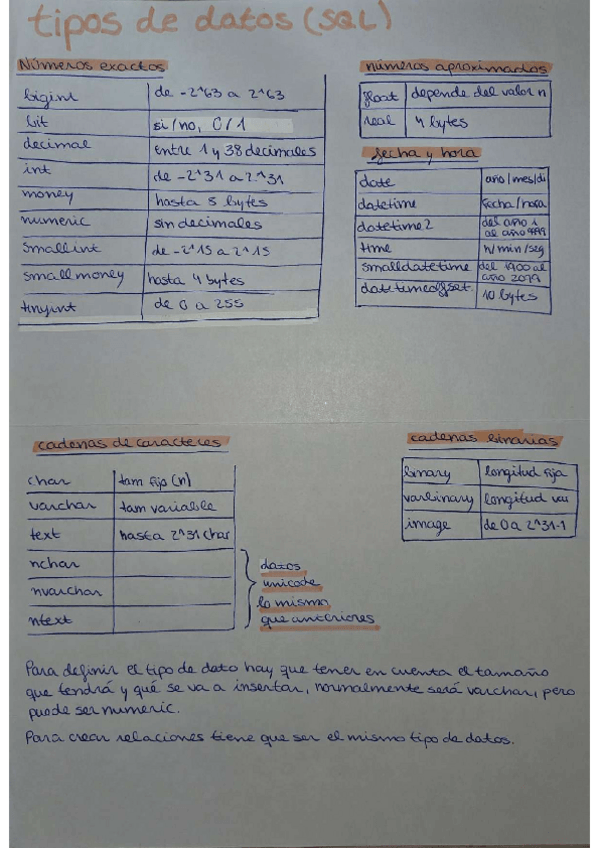 tipos de datos (SQL)
Números exactos
bigint de -2^63 a 2^63
bit si/no, 0/1
decimal entre 1 y 38 decimales
int de -2^31 a 2^31
money hasta 8 bytes
numeric sin decimales
smallint de -2^15 a 2^15
smallmoney hasta 4 bytes
tinyint de 0 a 255
números aproximados
float depende del valor n
real 4 bytes
fecha y hora
date año/mes/dí
datetime fecha/hora
datetime2 del año 1
al año 9999
time h/min/seg
smalldatetime del 1900 al
año 2079
datetimeoffset 10 bytes
cadenas de caracteres
char tam fijo (n)
varchar tam variable
text hasta 2^31 char
nchar
nvarchar
ntext
datos
unicode
lo mismo
que anteriores
cadenas binarias
binary longitud fija
varbinary longitud var
image de 0 a 2^31-1
Para definir el tipo de dato hay que tener en cuenta el tamaño
que tendrá y qué se va a insertar, normalmente será varchar, pero
puede ser numeric.
Para crear relaciones tiene que ser el mismo tipo de datos.